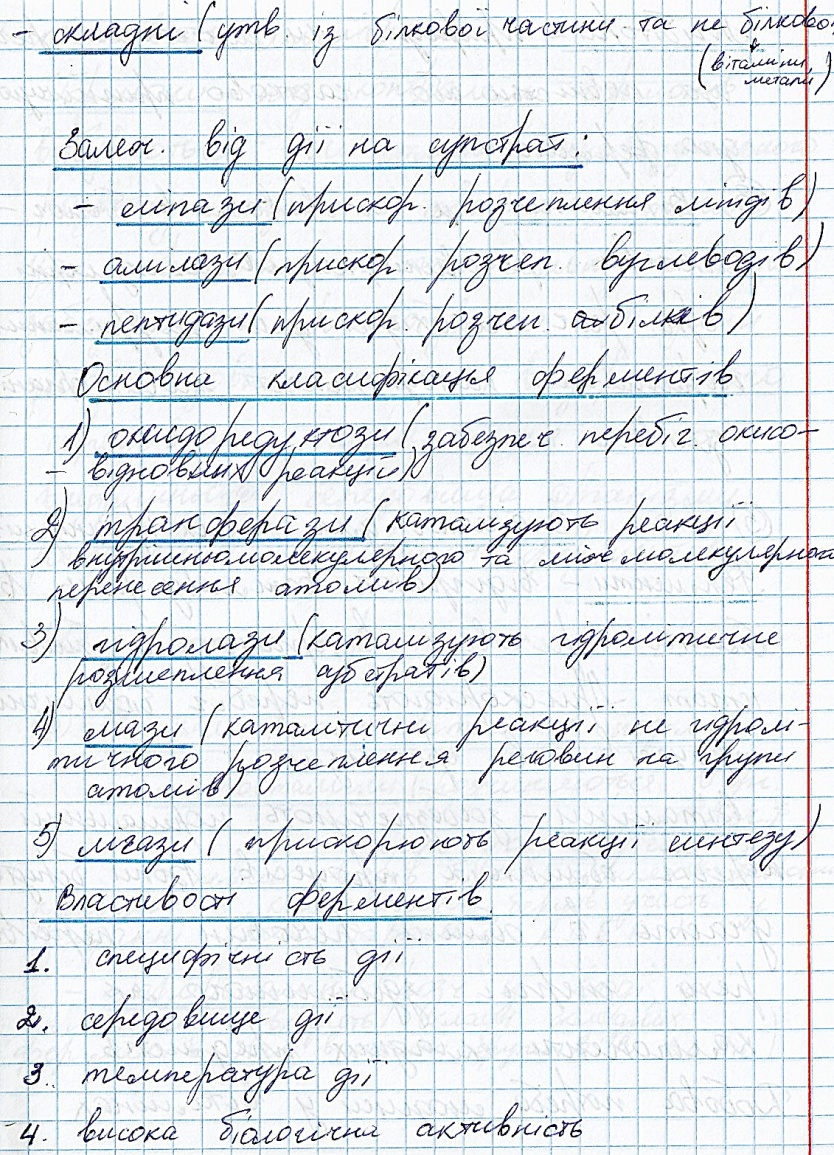 - складні (утв. із білкової частини та не білкової
(вітаміни, метали)
Залеж. від дії на супстрат:
- ліпази (прискор. розчеплення ліпідів)
- амілази (прискор. розчеп. вуглеводів)
- пептидази (прискор. розчеп. білків)
Основна класифікація ферментів
1) оксидоредуктози (забезпеч. перебіг. окисо-
- відновних реакцій)
2) трансферази (каталізують реакції
внутрішньомолекулярного та міжмолекулярного
перенесення атомів)
3) гідролази (каталізують гідролітичне
розщеплення субстратів)
4) ліази (каталітичні реакції не гідролі-
тичного розчеплення речовин на групи
атомів)
5) лігази (прискорюють реакції синтезу)
Властивості ферментів
1. специфічність дії
2. середовище дії
3. температура дії
4. висока біологічна активність